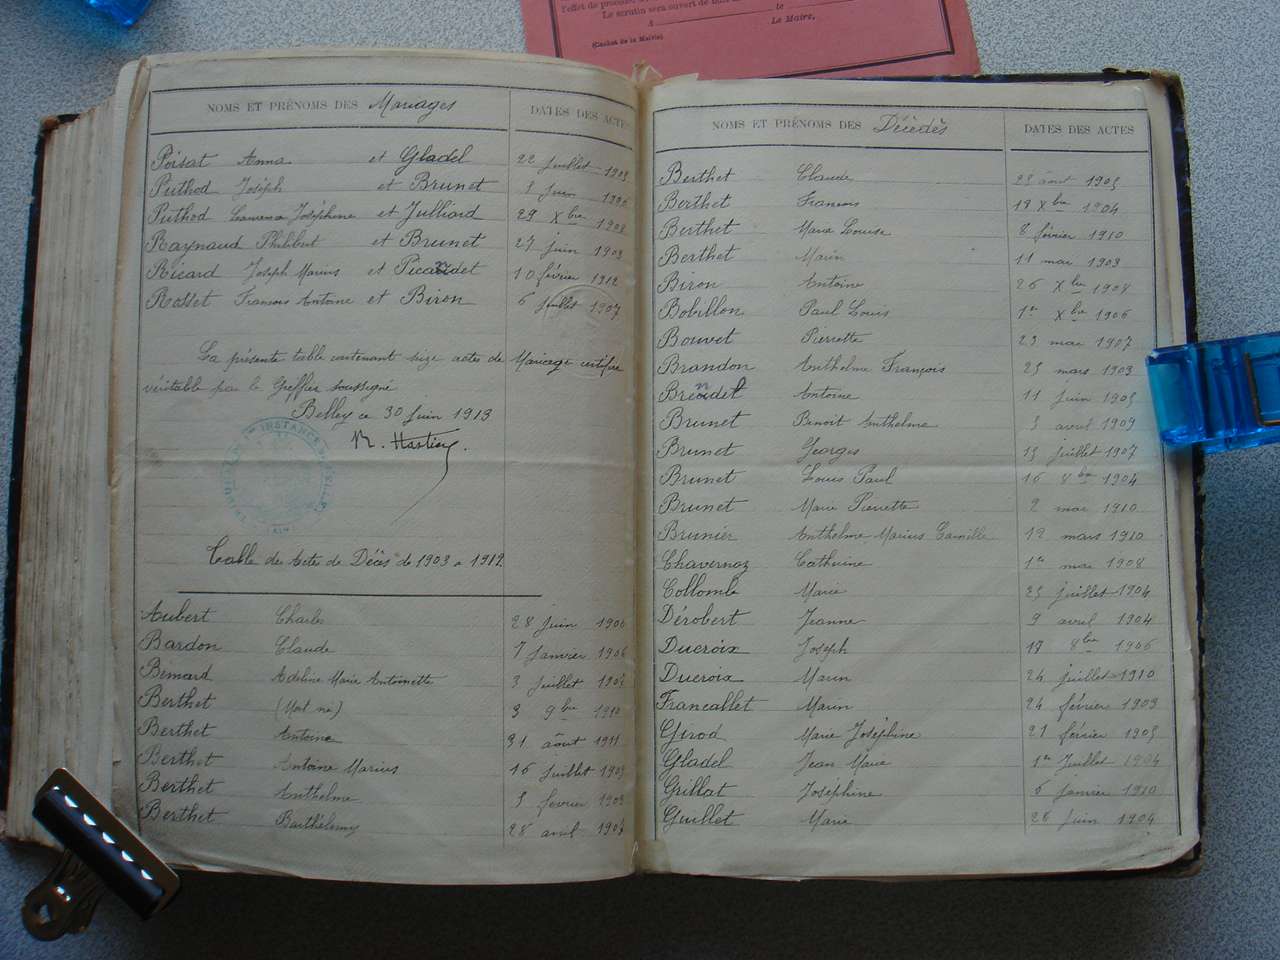 l'effet de procéder
Le scrutin sera ouvert de
A le
Le Maire,
(Cachet de la Mairie)
NOMS ET PRÉNOMS DES Mariages DATES DES ACTES
Poisat Anna et Gladel 22 juillet 1903
Puthod Joseph et Brunet juin
Puthod Joséphine et Julliard 29 Xbre 1908
Raynaud Philibert et Brunet 27 juin 1903
Ricard Joseph Marius et Picandet 10 février 1912
Rosset François Antoine et Biron 6 juillet 1907
La présente table contenant seize actes de Mariage certifiée
véritable par le Greffier soussigné
Belley ce 30 Juin 1913
Table des Actes de Décès de 1903 à 1912
Aubert Charles 28 juin 1906
Bardon Claude 7 janvier 1906
Bémard Adeline Marie Antoinette 3 juillet
Berthet (Mort né) 3 9bre 1910
Berthet Antoine 31 août 1911
Berthet Antoine Marius 16 juillet
Berthet Anthelme février
Berthet Barthélemy 28 avril
NOMS ET PRÉNOMS DES Décédés DATES DES ACTES
Berthet Claude août
Berthet François 18 Xbre 1904
Berthet Marie Louise 8 février 1910
Berthet Marin 11 mai 1903
Biron Antoine 26 Xbre 1908
Bobillon Paul Louis 1er Xbre 1906
Bouvet Pierrette 23 mai 1907
Brandon Anthelme François mars 1903
Antoine 11 juin
Brunet Benoit Anthelme avril
Brunet Georges juillet 1907
Brunet Louis Paul 16 8bre 1904
Brunet Marie Pierrette 2 mai 1910
Brunier Anthelme Marius Camille 12 mars 1910
Chavernoz Catherine 1er mai 1908
Collomb Marie juillet 1904
Dérobert Jeanne 9 avril 1904
Ducroix Joseph 8bre 1906
Ducroix Marin 24 juillet 1910
Francallet Marin 24 février 1909
Girod Marie Joséphine 21 février
Gladel Jean Marie 1er Juillet 1904
Grillat Joséphine 6 janvier 1910
Guillet Marie 26 juin 1904